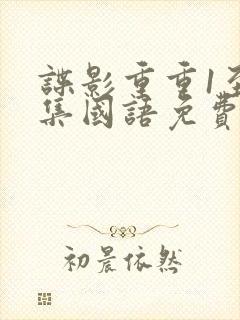 諜影重重1至
集國語免費
初晨依然